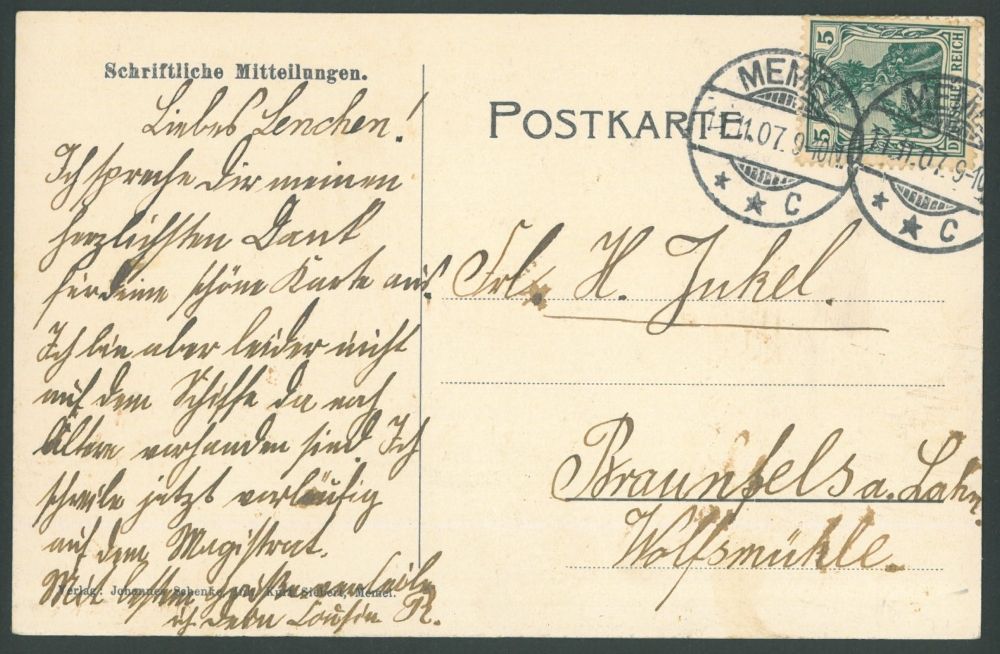 Schriftliche Mitteilungen.
Liebes Lenchen!
Ich spreche Dir meinen
herzlichsten Dank
für deine schöne Karte aus.
Ich bin aber leider nicht
auf dem Schiffe da noch
Ältere vorhanden sind. Ich
schreibe jetzt vorläufig
auf dem Magistrat.
Mit besten Grüßen verbleibe
ich dein Cousin R.
Verlag: Johannes Schenke, Kurt Siebert, Memel.
POSTKARTE
5 5
DEUTSCHES REICH
MEMEL
11.11.07. 9-10N.
* * C
MEMEL
11.11.07. 9-10
* * C
Frl. H. Inkel.
Braunfels a. Lahn.
Wolfsmühle.